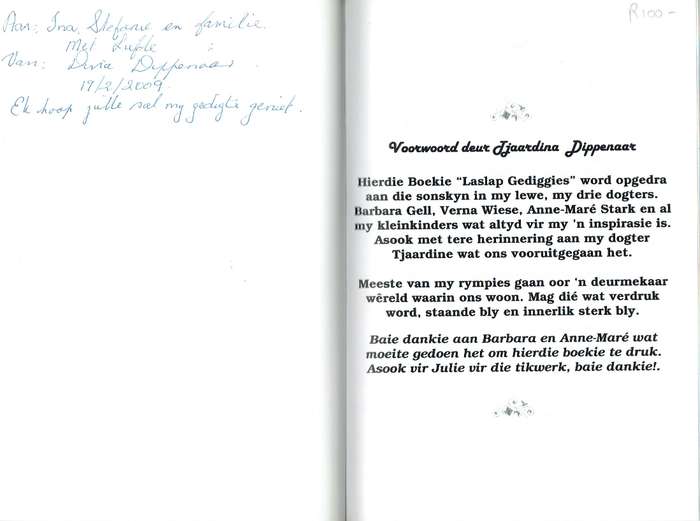 Aan: Ina, Stefanie en familie.
Met Liefde :
Van: Dinia Dippenaar
19/2/2009.
Ek hoop julle sal my gedigte geniet.
R100-
Voorwoord deur Tjaardina Dippenaar
Hierdie Boekie "Laslap Gediggies" word opgedra
aan die sonskyn in my lewe, my drie dogters.
Barbara Gell, Verna Wiese, Anne-Maré Stark en al
my kleinkinders wat altyd vir my 'n inspirasie is.
Asook met tere herinnering aan my dogter
Tjaardine wat ons vooruitgegaan het.
Meeste van my rympies gaan oor 'n deurmekaar
wêreld waarin ons woon. Mag dié wat verdruk
word, staande bly en innerlik sterk bly.
Baie dankie aan Barbara en Anne-Maré wat
moeite gedoen het om hierdie boekie te druk.
Asook vir Julie vir die tikwerk, baie dankie!.